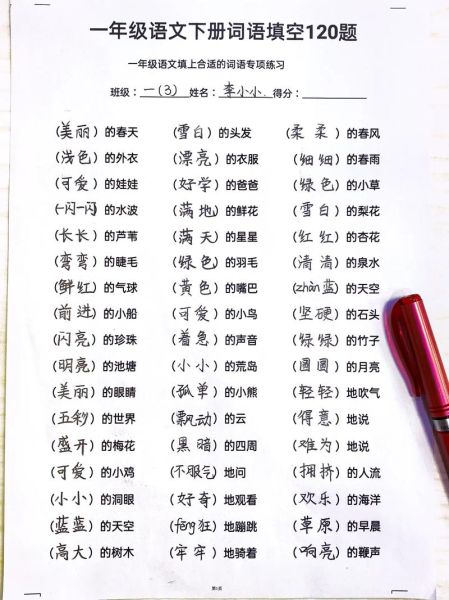 一年级语文下册词语填空120题
一年级语文填上合适的词语专项练习
班级：一(3) 姓名：李小小. 得分：
(美丽)的春天 (雪白)的头发 (柔柔)的春风
(浅色)的外衣 (漂亮)的衣服 (细细)的春雨
(可爱)的娃娃 (好学)的爸爸 (绿色)的小草
(一闪一闪)的水波 (满地)的鲜花 (雪白)的梨花
(长长)的芦苇 (满天)的星星 (红红)的杏花
(弯弯)的睫毛 (绿色)的羽毛 (清清)的泉水
(鲜红)的气球 (黄色)的嘴巴 (zhàn蓝)的天空
(前进)的小船 (可爱)的小鸟 (坚硬)的石头
(闪亮)的珍珠 (着急)的声音 (绿绿)的竹子
(明亮)的池塘 (小小)的荒岛 (圆圆)的月亮
(美丽)的眼睛 (孤单)的小熊 (轻轻)地吹气
(五彩)的世界 (飘动)的云 (得意)地说
(盛开)的梅花 (黑暗)的四周 (难为)地说
(可爱)的小鸡 (不服气)地问 (拥挤)的人流
(小小)的洞眼 (好奇)地观看 (欢乐)的海洋
(蓝蓝)的天空 (fēng狂)地蹦跳 (草原)的早晨
(高大)的树木 (牢牢)地骑着 (响亮)的鞭声
第1页